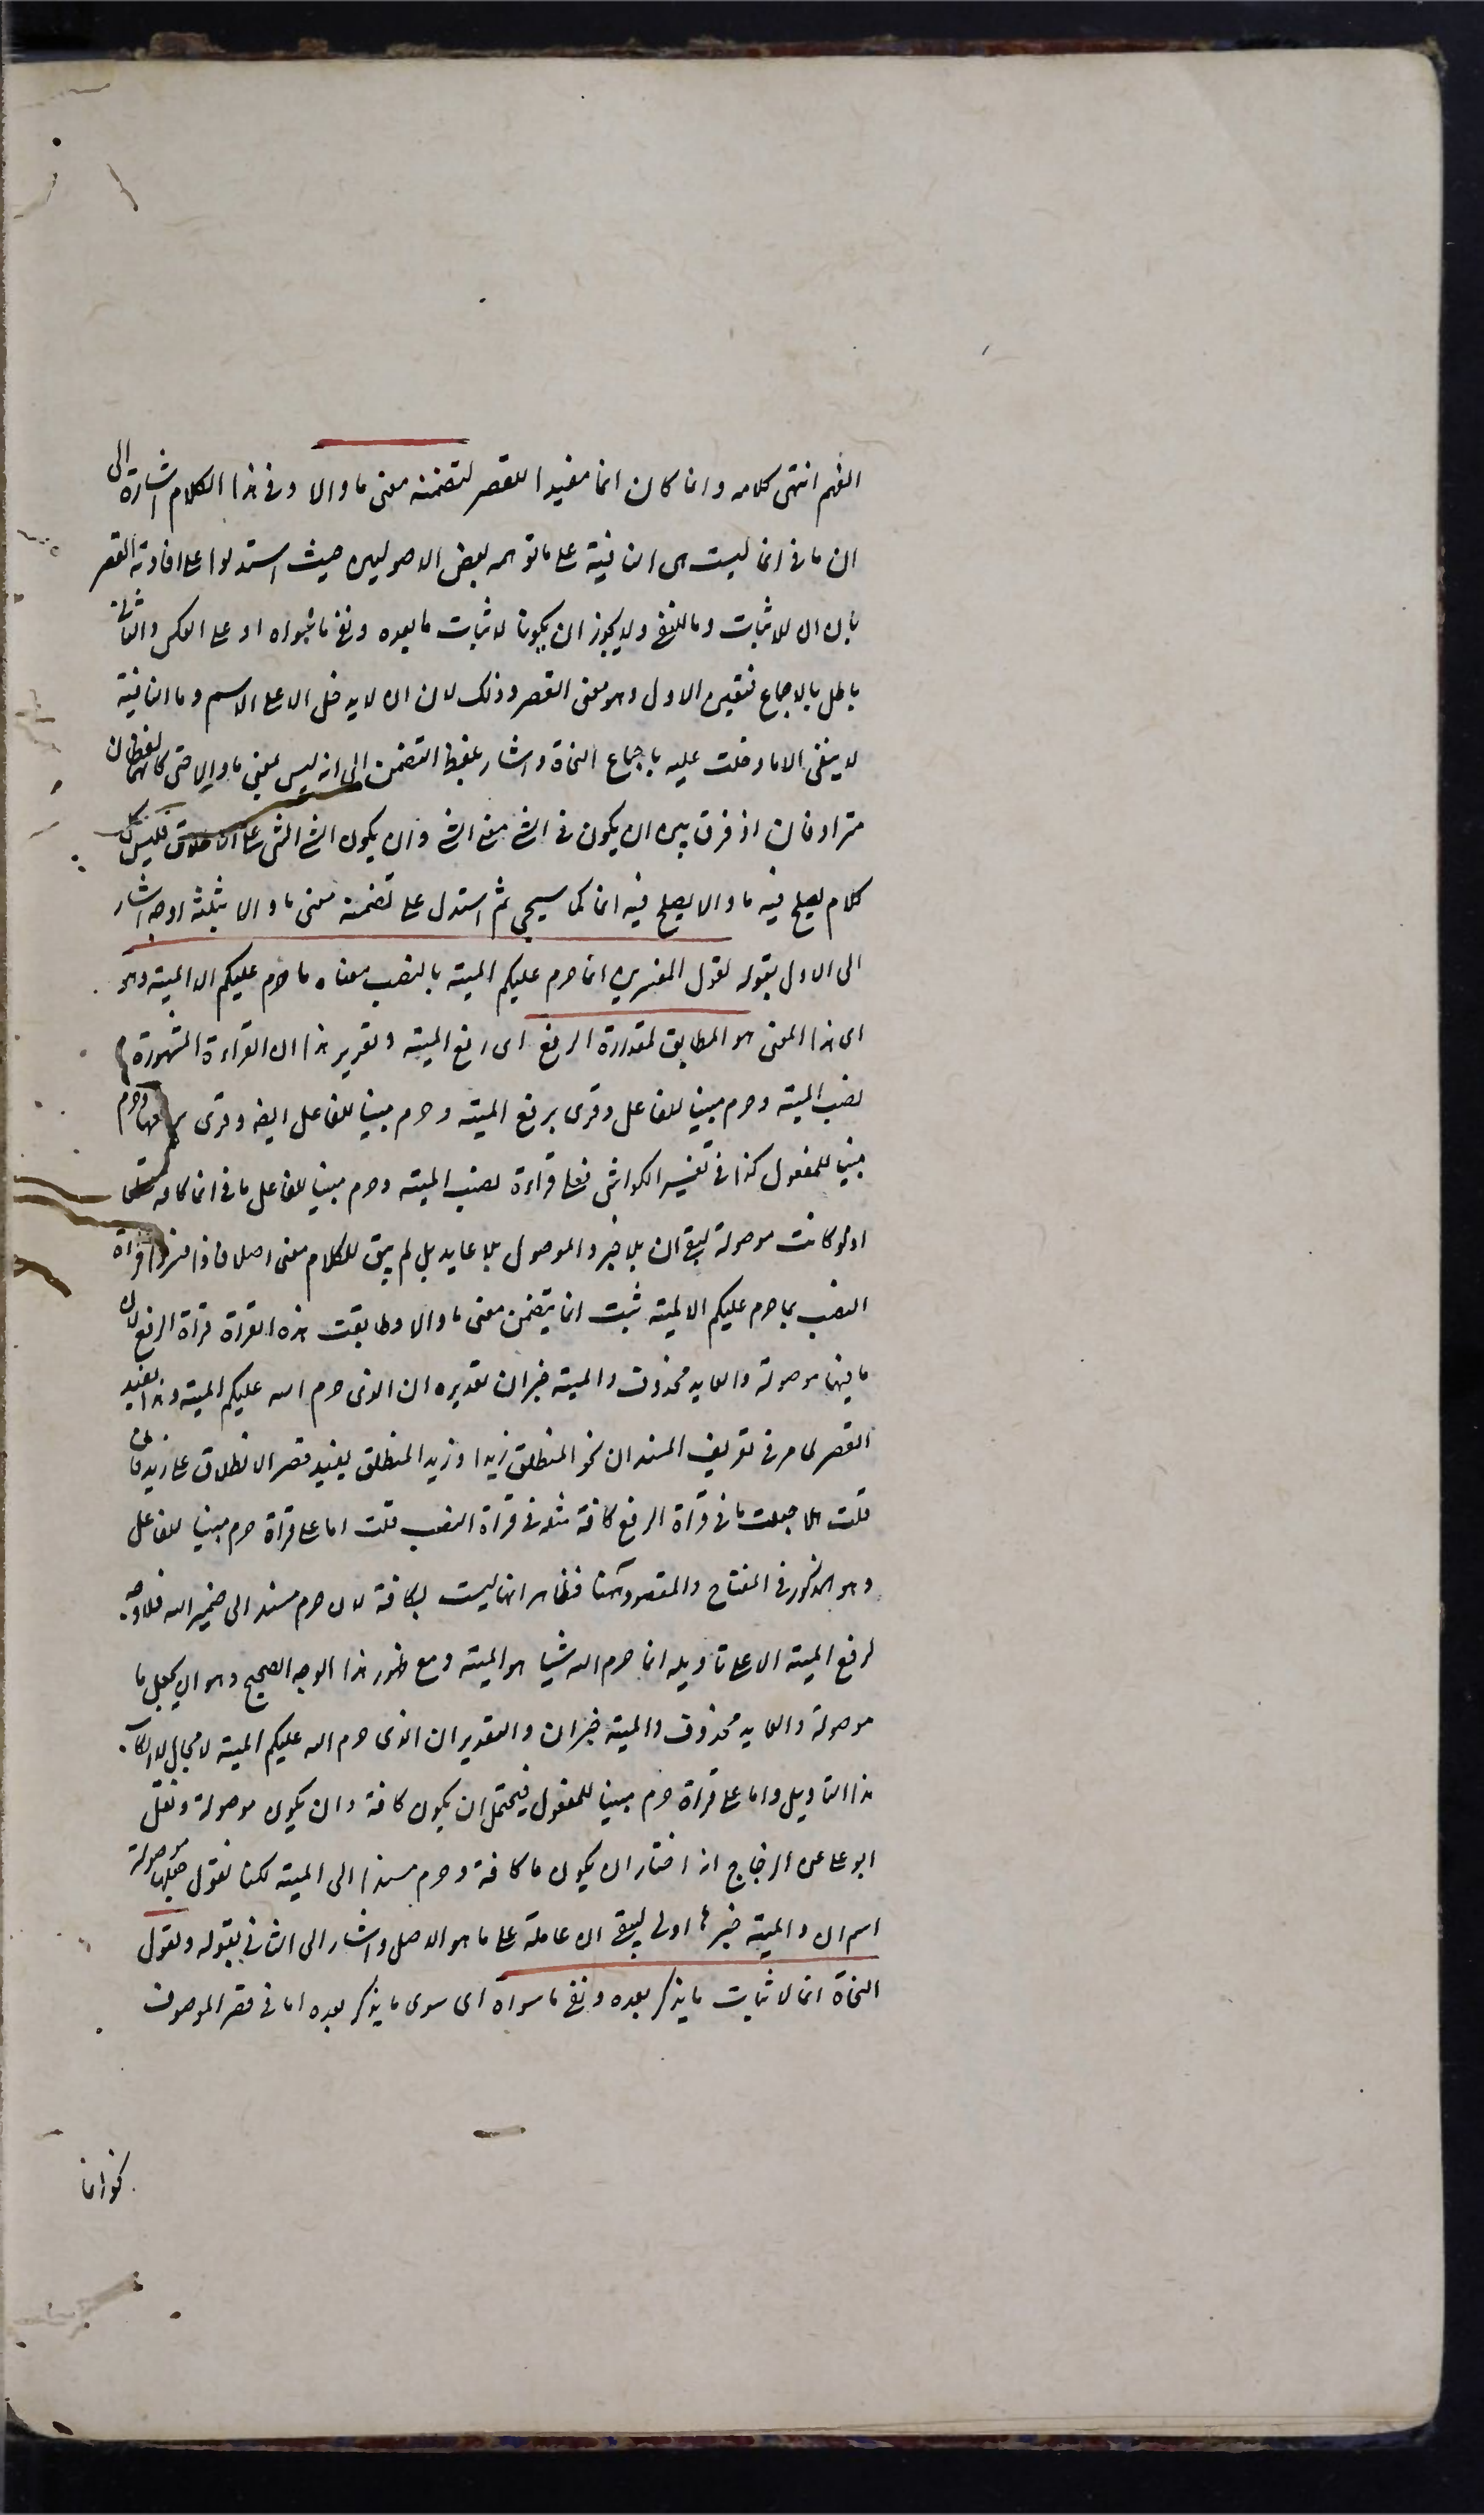 الفهم انتهى كلامه وانما كان انما مفيدا للقصر لتضمنه معنى ما والا وفى هذا الكلام اشارة الى
ان ما فى انما ليست هى النافية على ما توهمه بعض الاصوليين حيث استدلوا على افادته القصر
بان ان للاثبات وما للنفى ولا يجوز ان يكونا لاثبات ما بعده ونفى ما سواه او على العكس والثانى
باطل بالاجماع فتعين الاول وهو معنى القصر وذلك لان ان لا يدخل الا على الاسم وما النافية
لا ينفى الا ما دخلت عليه باجماع النحاة واشار بلفظ التضمن الى انه ليس بمعنى ما والا حتى كانهما لفظان
مترادفان اذ فرق بين ان يكون فى الشى معنى الشى وان يكون الشى الشى على الاطلاق فليس كل
كلام يصلح فيه ما والا يصلح فيه انما كما سيجى ثم استدل على تضمنه معنى ما والا بثلثة اوجه اشار
الى الاول بقوله لقول المفسرين انما حرم عليكم الميتة بالنصب معناه ما حرم عليكم الا الميتة وهو
اى هذا المعنى هو المطابق لقراءة الرفع اى رفع الميتة وتقرير هذا ان القراءة المشهورة
نصب الميتة وحرم مبنيا للفاعل وقرى برفع الميتة وحرم مبنيا للفاعل ايضا وقرى برفعها وحرم
مبنيا للمفعول كذا فى تفسير الكواشى فعلى قراءة نصب الميتة وحرم مبنيا للفاعل ما فى انما كافة
اذ لو كانت موصولة لبقى ان بلا خبر والموصول بلا عايد بل لم يبق للكلام معنى اصلا فاذا فسروا قراة
النصب بما حرم عليكم الا الميتة ثبت انما يتضمن معنى ما والا وطابقت هذه القراة قراة الرفع لان
ما فيها موصولة والعايد محذوف والميتة خبر ان تقديره ان الذى حرم الله عليكم الميتة وهذا يفيد
القصر لما مر فى تعريف المسند ان نحو المنطلق زيد او زيد المنطلق يفيد قصر الانطلاق على زيد فان
قلت هلا جعلت ما فى قراة الرفع كافة مثله فى قراة النصب قلت اما على قراة حرم مبنيا للفاعل
وهو المذكور فى المفتاح والمقصود هنا فظاهر انها ليست بكافة لان حرم مسند الى ضمير الله فلا وجه
لرفع الميتة الا على تاويله انما حرم الله شيا هو الميتة ومع ظهور هذا الوجه الصحيح وهو ان يجعل ما
موصولة والعايد محذوف والميتة خبر ان والتقدير ان الذى حرم الله عليكم الميتة لا مجال لارتكاب
هذا التاويل واما على قراة حرم مبنيا للمفعول فيحتمل ان يكون كافة وان يكون موصولة ونقل
ابو على عن الزجاج انه اختار ان يكون ما كافة وحرم مسندا الى الميتة لكنا نقول جعلها موصولة
اسم ان والميتة خبرها اولى ليبقى ان عاملة على ما هو الاصل واشار الى الثانى بقوله ولقول
النحاة انما لاثبات ما يذكر بعده ونفى ما سواه اى سوى ما يذكر بعده اما فى قصر الموصوف
نحو انما